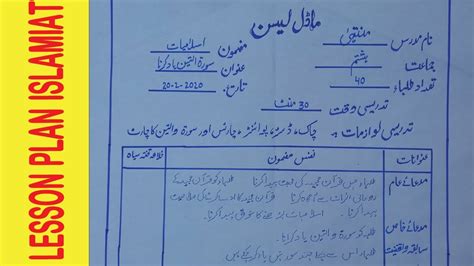 LESSON PLAN ISLAMIAT
ماڈل لیسن
نام مدرس
مضمون اسلامیات
جماعت ہشتم
عنوان سورۃ التین یاد کرنا
تعداد طلباء 40
تاریخ: 20-2-2020
تدریسی وقت 30 منٹ
تدریسی لوازمات: چاک، ڈسٹر، پوائنٹر، چارٹس اور سورۃ والتین کا چارٹ
عنوانات
نفس مضمون
خلاصہ تختہ سیاہ
مدعائے عام
طلباء میں قرآن مجید کی محبت پیدا کرنا
طلباء کو قرآن مجید کے
پیدا کرنا۔
مدعائے خاص
طلباء کو سورۃ والتین یاد کرانا۔
سابقہ واقفیت
طلباء اس سے پہلے چند سورتیں یاد کر چکے ہیں